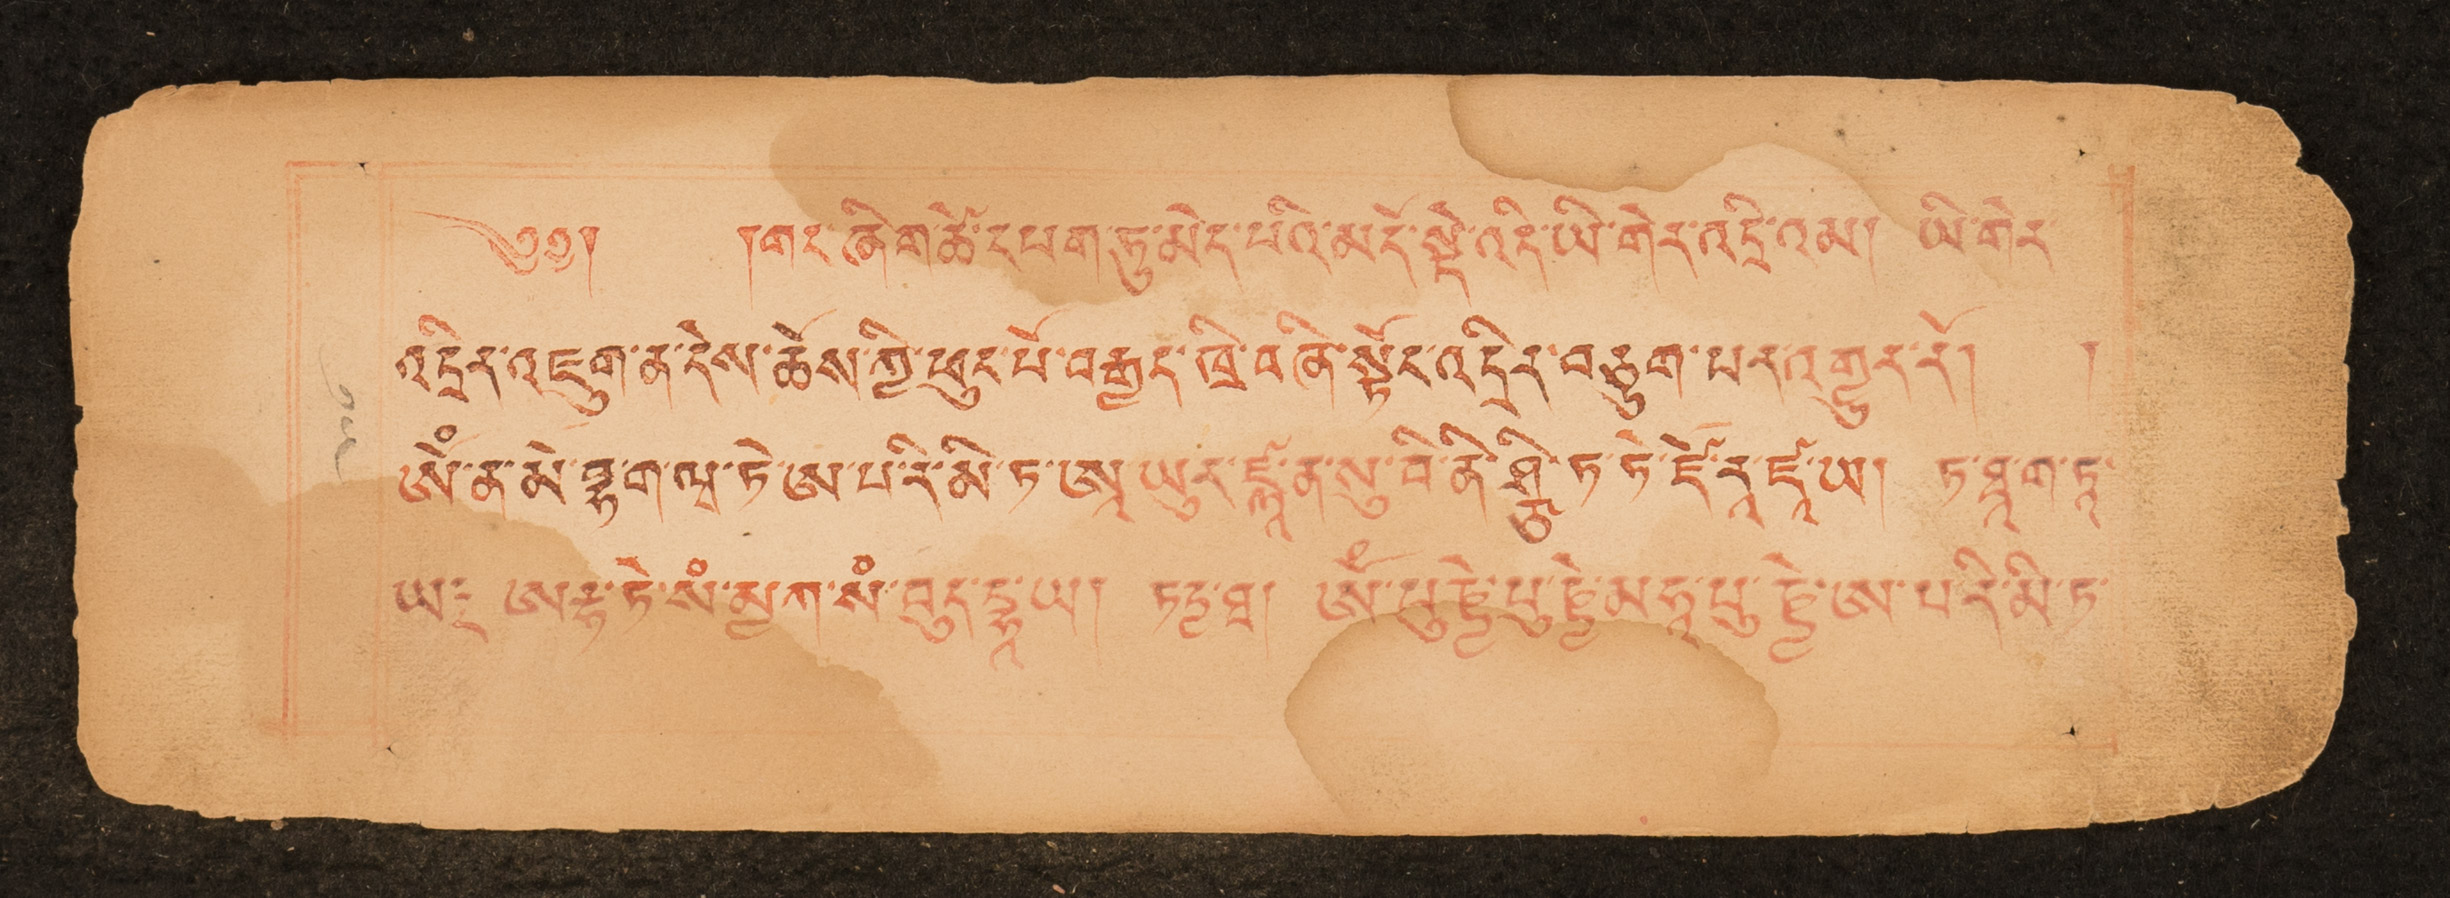 ༄༅། །གང་ཞིག་ཚེ་དཔག་ཏུ་མེད་པའི་མདོ་སྡེ་འདི་ཡི་གེར་འདྲི་འམ། ཡི་གེར་
འདྲིར་འཇུག་ན་དེས་ཆོས་ཀྱི་ཕུང་པོ་བརྒྱད་ཁྲི་བཞི་སྟོང་འདྲིར་བཅུག་པར་འགྱུར་རོ། །
ཨོཾ་ན་མོ་བྷ་ག་ཝ་ཏེ་ཨ་པ་རི་མི་ཏ་ཨཱ་ཡུར་ཛྙཱ་ན་སུ་བི་ནི་ཤྩི་ཏ་ཏེ་ཛོ་རཱ་ཛཱ་ཡ། ཏ་ཐཱ་ག་ཏཱ་
ཡ༑ ཨརྷ་ཏེ་སཾ་མྱཀ་སཾ་བུད་དྷཱ་ཡ། ཏདྱ་ཐཱ། ཨོཾ་པུཎྱེ་པུཎྱེ་མཧཱ་པུ་ཎྱེ་ཨ་པ་རི་མི་ཏ་